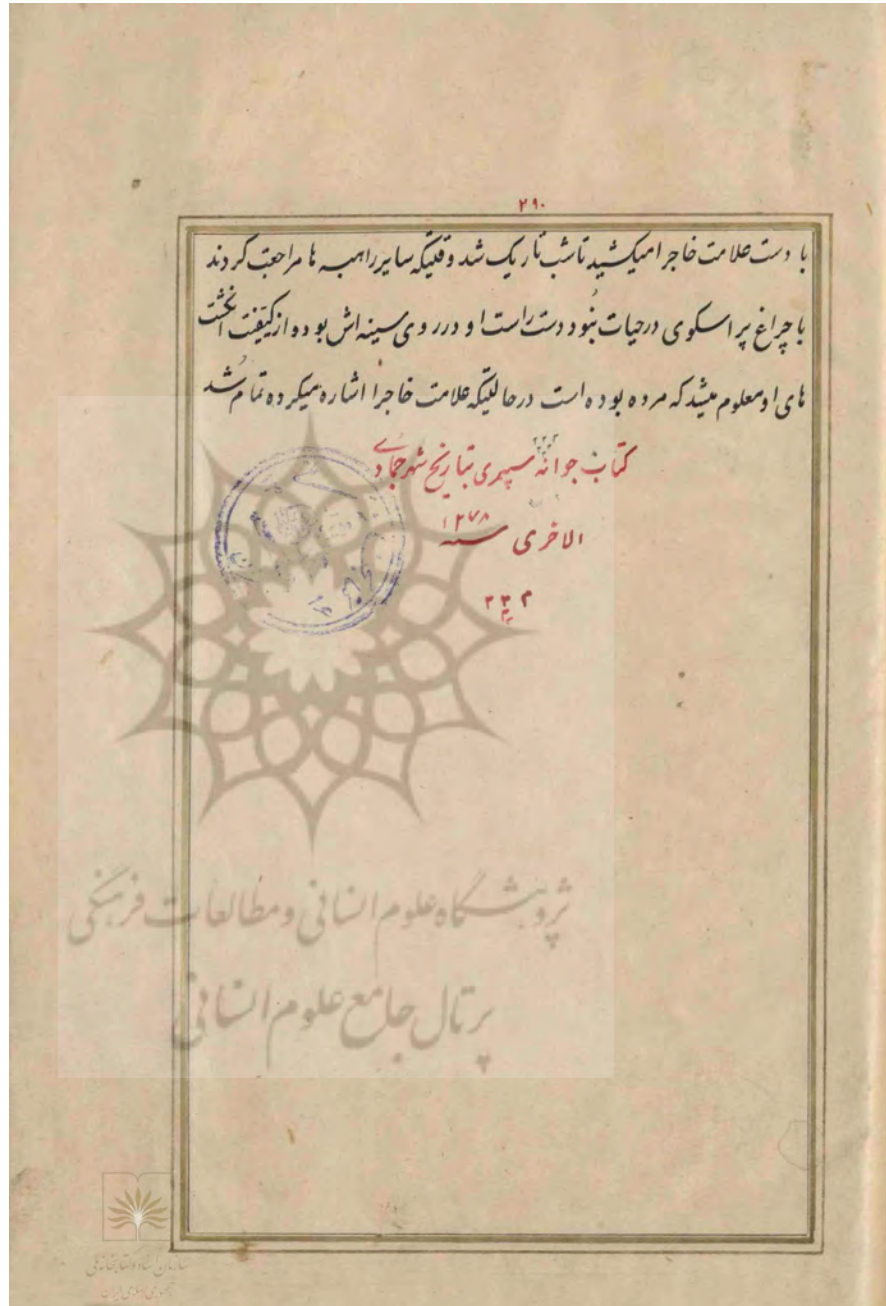 ۲۹۰
با دست علامت خاجرا میکشید تا شب تاریک شد وقتیکه سایر راهبه ها مراجعت کردند
با چراغ پراسکوی در حیات نبود دست راست او در روی سینه اش بوده از کیفیت انگشت
های او معلوم میشد که مرده بوده است در حالتیکه علامت خاجرا اشاره میکرده تمام شد
کتاب جوانه سپهری بتاریخ شهر جمادی
الاخری سنه ۱۲۷۸
پژوهشگاه علوم انسانی و مطالعات فرهنگی
پرتال جامع علوم انسانی
سازمان اسناد و کتابخانه ملی
جمهوری اسلامی ایران